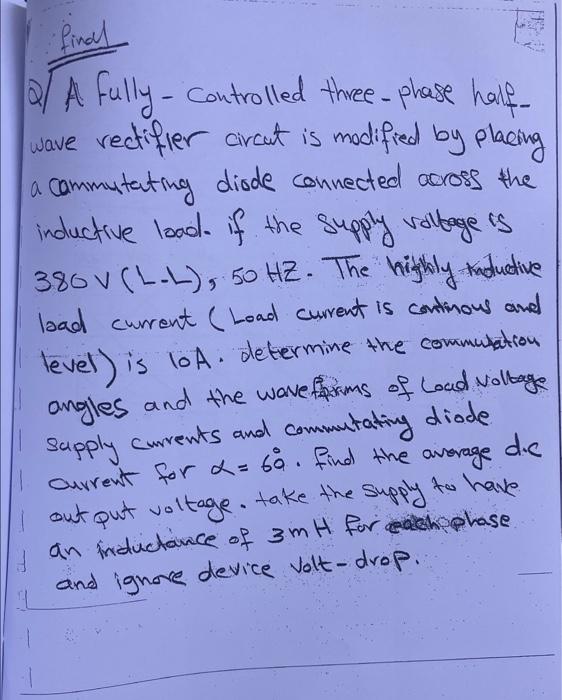 final
Q/ A Fully - Controlled three - phase half-
wave rectifier circut is modified by placing
a commutating diode connected across the
inductive load. if the supply voltage is
380 V (L-L), 50 HZ. The highly inductive
load current (Load current is continous and
level) is 10A. determine the commutation
angles and the waveforms of Load voltage
supply currents and commutating diode
current for α = 60°. find the average d.c
out put voltage. take the supply to have
an inductance of 3 mH for each phase
and ignore device volt-drop.